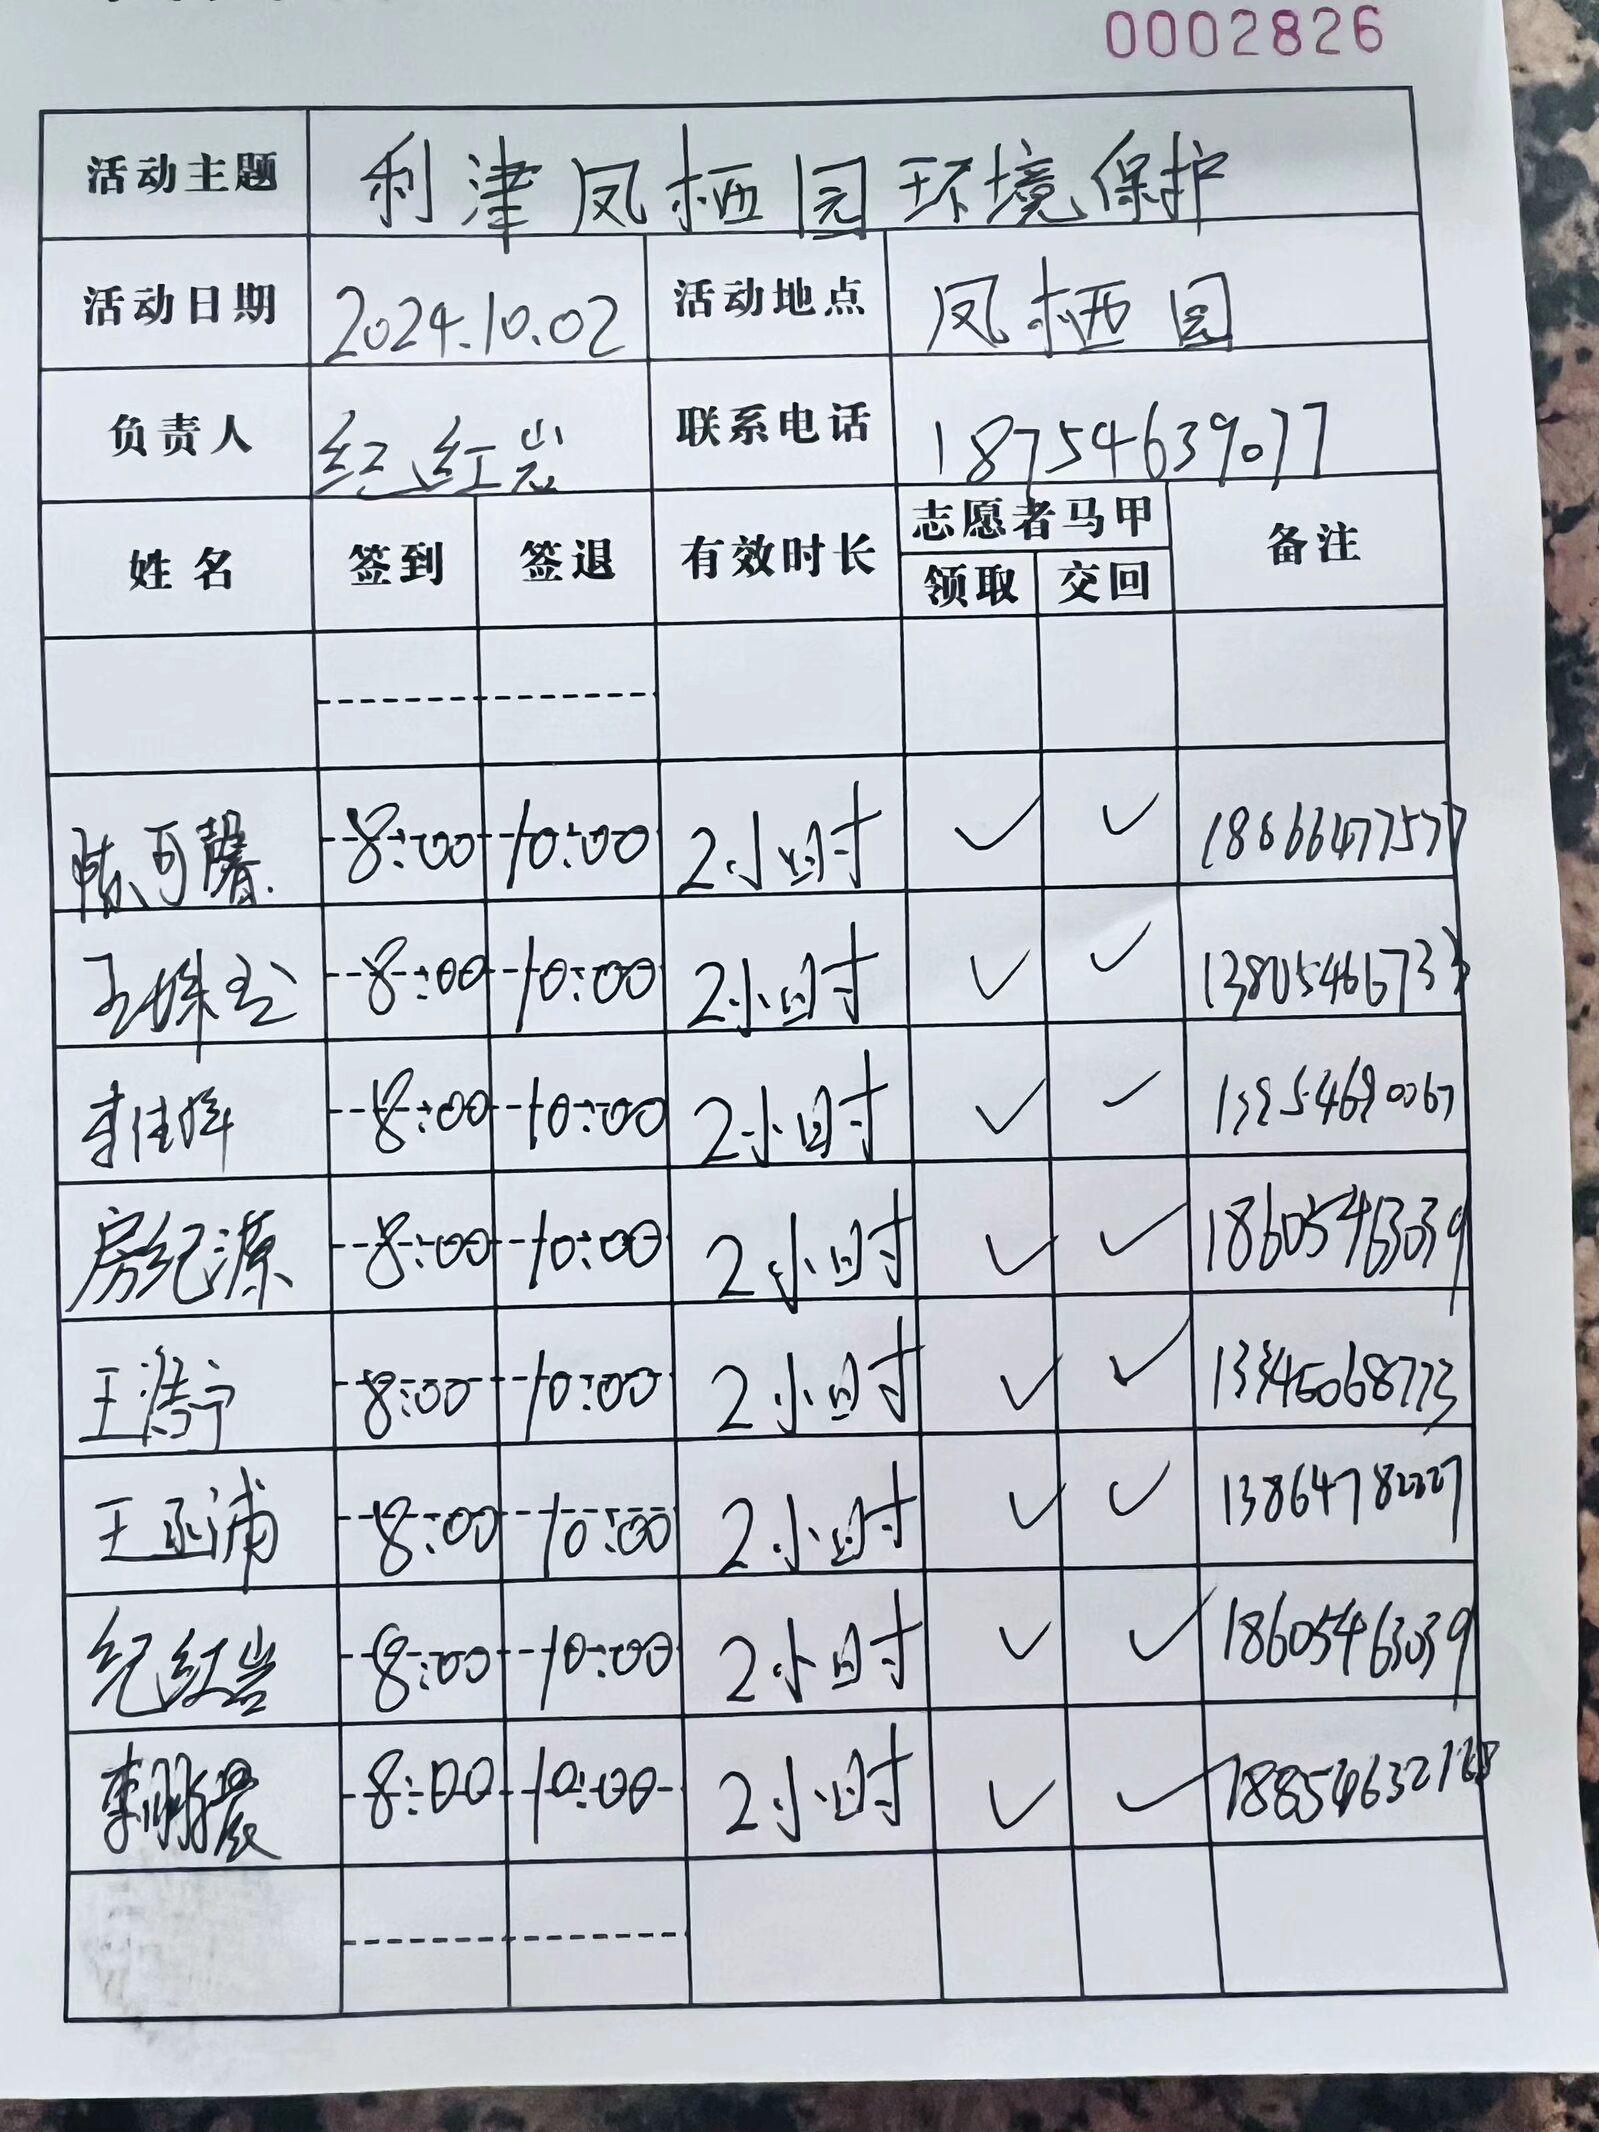 0002826
活动主题 利津凤栖园环境保护
活动日期 2024.10.02 活动地点 凤栖园
负责人 纪红岩 联系电话 18754639077
姓名 签到 签退 有效时长 志愿者马甲 备注
领取 交回
陈可馨 8:00 10:00 2小时 ✓ ✓ 18666477577
8:00 10:00 2小时 ✓ ✓ 13805466733
李佳烨 8:00 10:00 2小时 ✓ ✓
房纪源 8:00 10:00 2小时 ✓ ✓ 18605463039
王浩宁 8:00 10:00 2小时 ✓ ✓ 13345068773
王丞浦 8:00 10:00 2小时 ✓ ✓
纪红岩 8:00 10:00 2小时 ✓ ✓ 18605463039
8:00 10:00 2小时 ✓ ✓